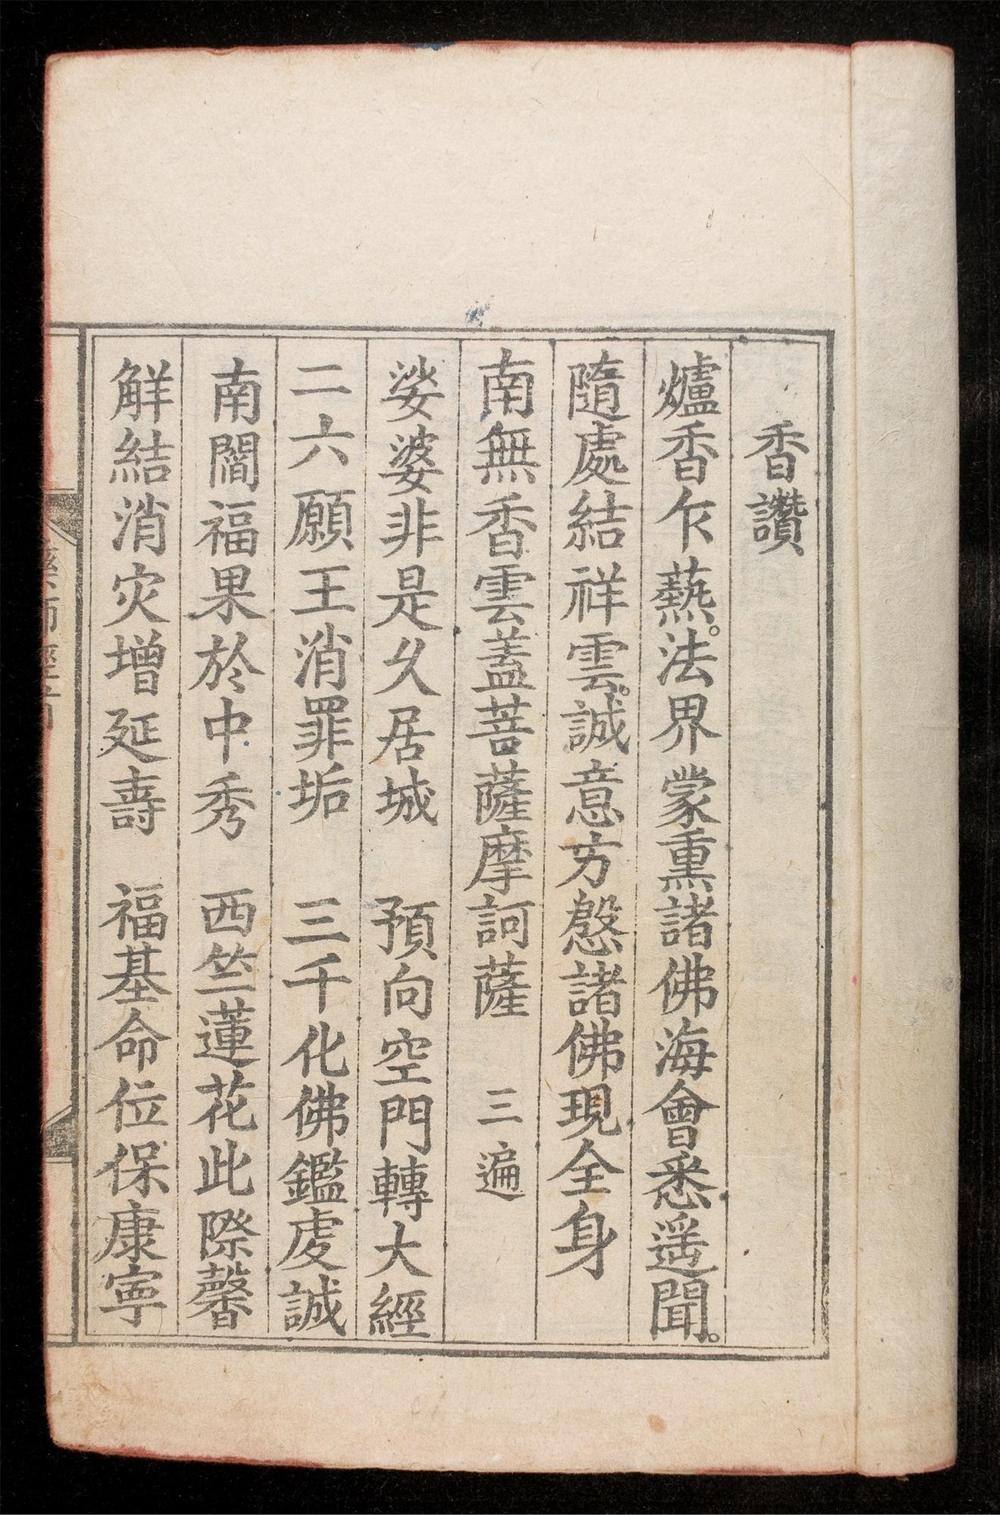 香讚
爐香乍爇。法界蒙熏諸佛海會悉遥聞。
隨處結祥雲。誠意方慇諸佛現全身
南無香雲盖菩薩摩訶薩 三遍
娑婆非是久居城 預向空門轉大經
二六願王消罪垢 三千化佛鑑虔誠
南閻福果於中秀 西竺蓮花此際馨
觧結消灾增延壽 福基命位保康寧